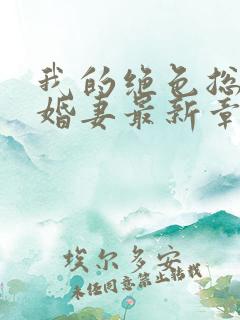 我的绝色总
婚妻最新章
埃尔多安
未经同意禁止转载